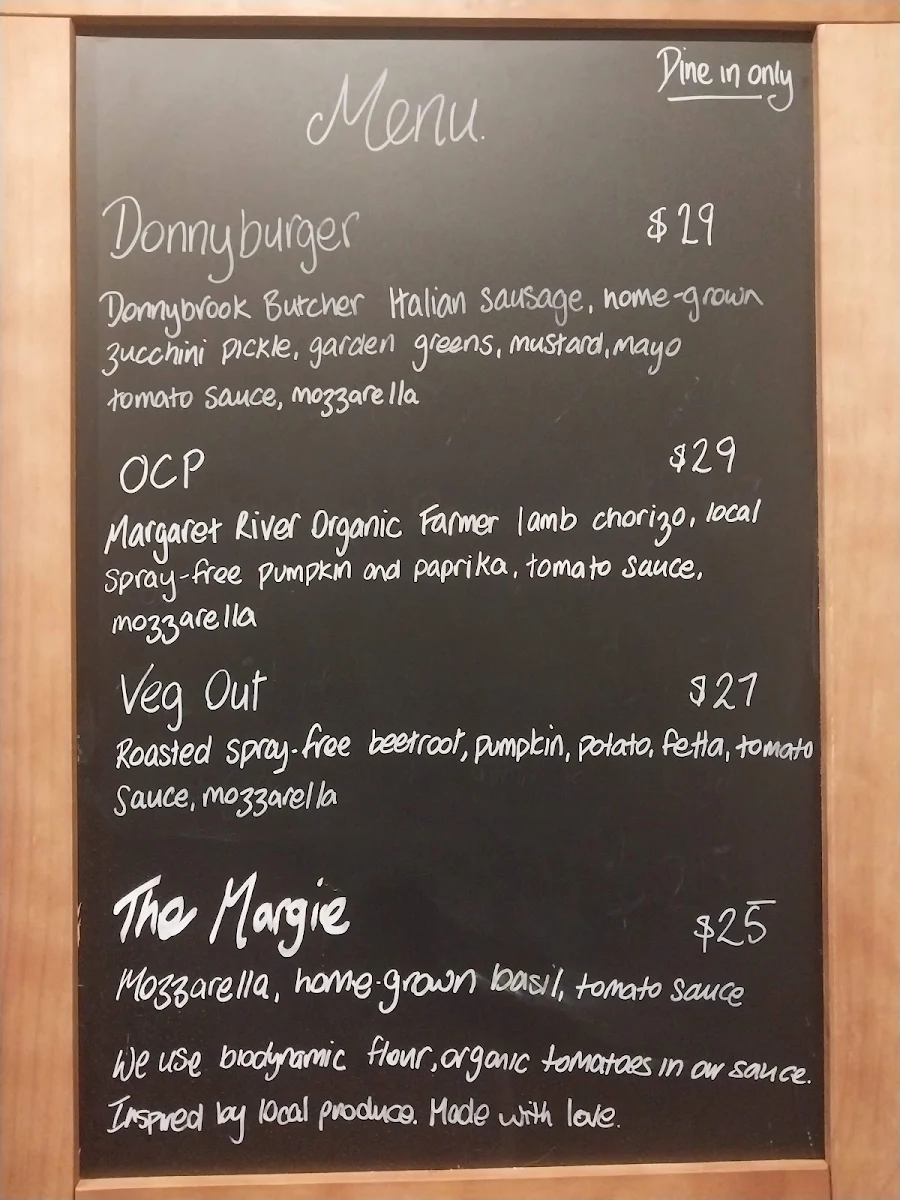 Dine in only
Menu.
Donnyburger $29
Donnybrook Butcher Italian sausage, home-grown
zucchini pickle, garden greens, mustard, mayo
tomato sauce, mozzarella
OCP $29
Margaret River Organic Farmer lamb chorizo, local
spray-free pumpkin and paprika, tomato sauce,
mozzarella
Veg Out $27
Roasted spray-free beetroot, pumpkin, potato, fetta, tomato
sauce, mozzarella
The Margie $25
Mozzarella, home-grown basil, tomato sauce
We use biodynamic flour, organic tomatoes in our sauce.
Inspired by local produce. Made with love.